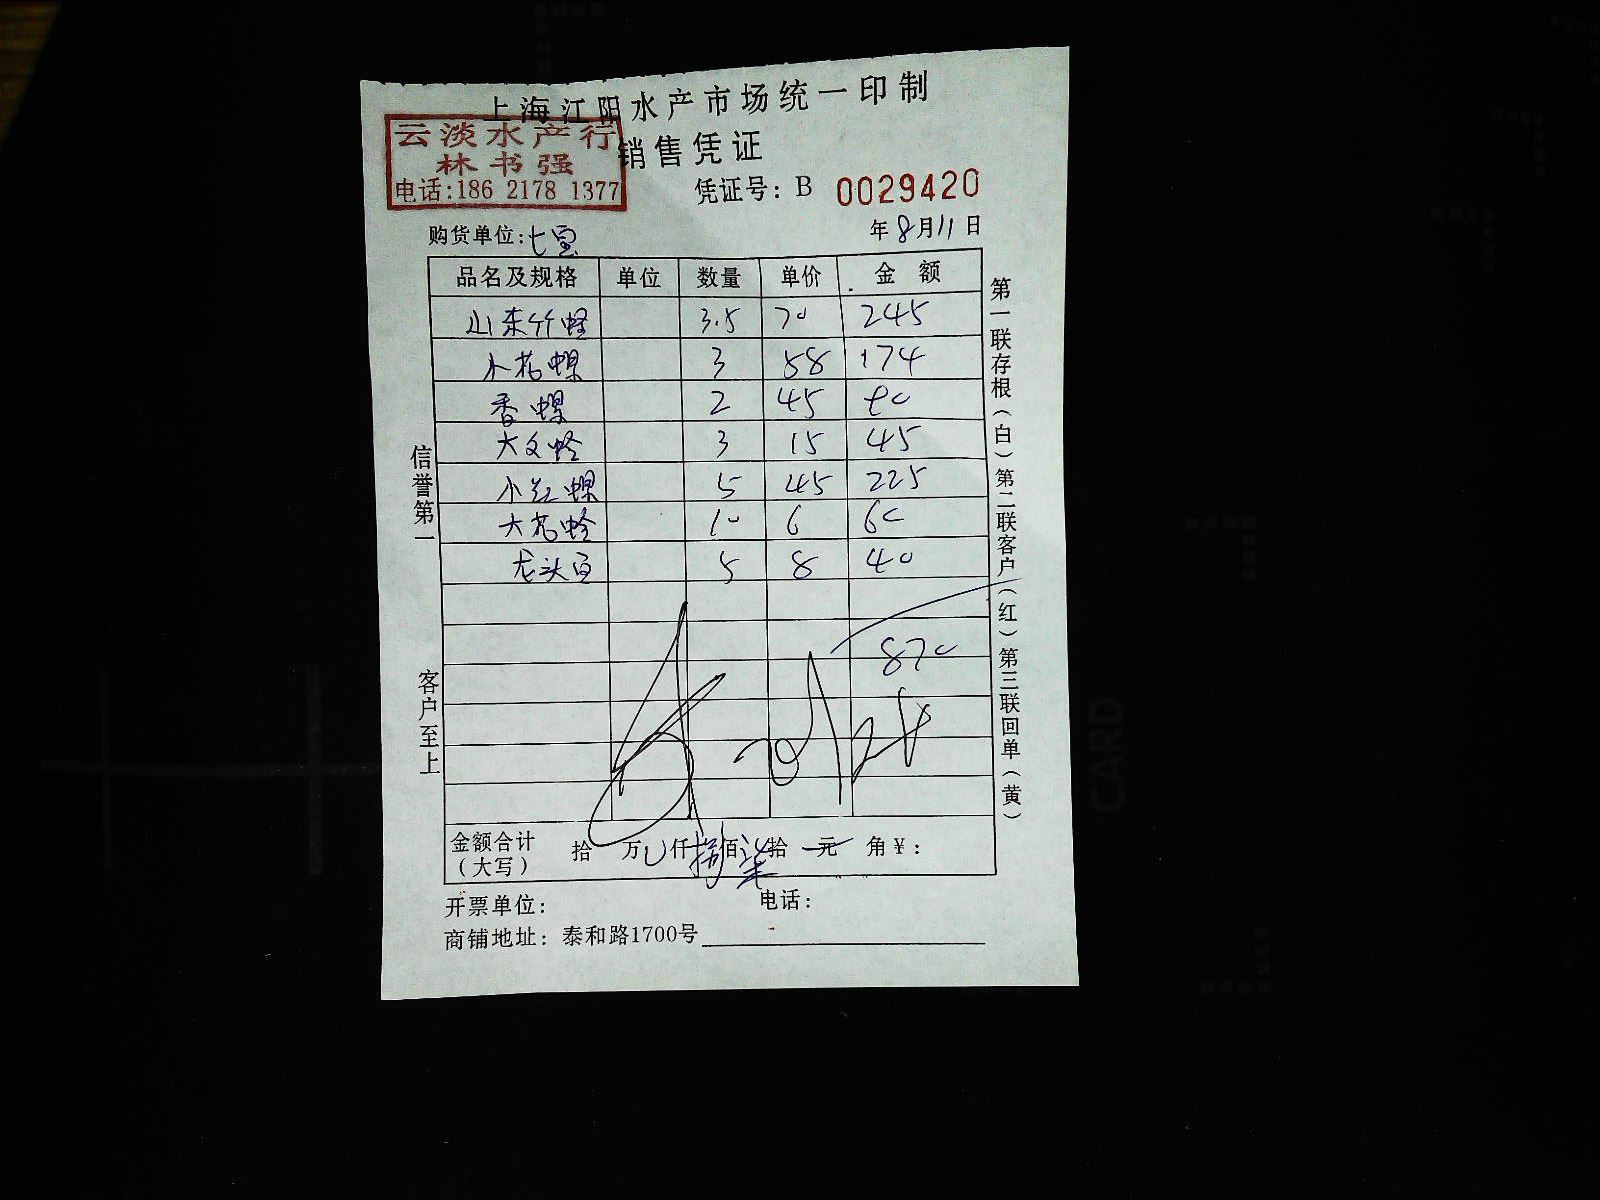 上海江阳水产市场统一印制
云淡水产行
林书强
电话:186 2178 1377
销售凭证
凭证号: B 0029420
购货单位:七宝
年8月11日
品名及规格 单位 数量 单价 金 额
山东竹蛏 3.5 70 245
小花螺 3 58 174
香螺 2 45 90
大文蛤 3 15 45
小红螺 5 45 225
大花蛤 10 6 60
龙头鱼 5 8 40
870
金额合计（大写） 拾 万 仟 捌佰 柒拾 元 角 ¥:
开票单位: 电话:
商铺地址: 泰和路1700号
信誉第一
客户至上
第一联存根（白）第二联客户（红）第三联回单（黄）